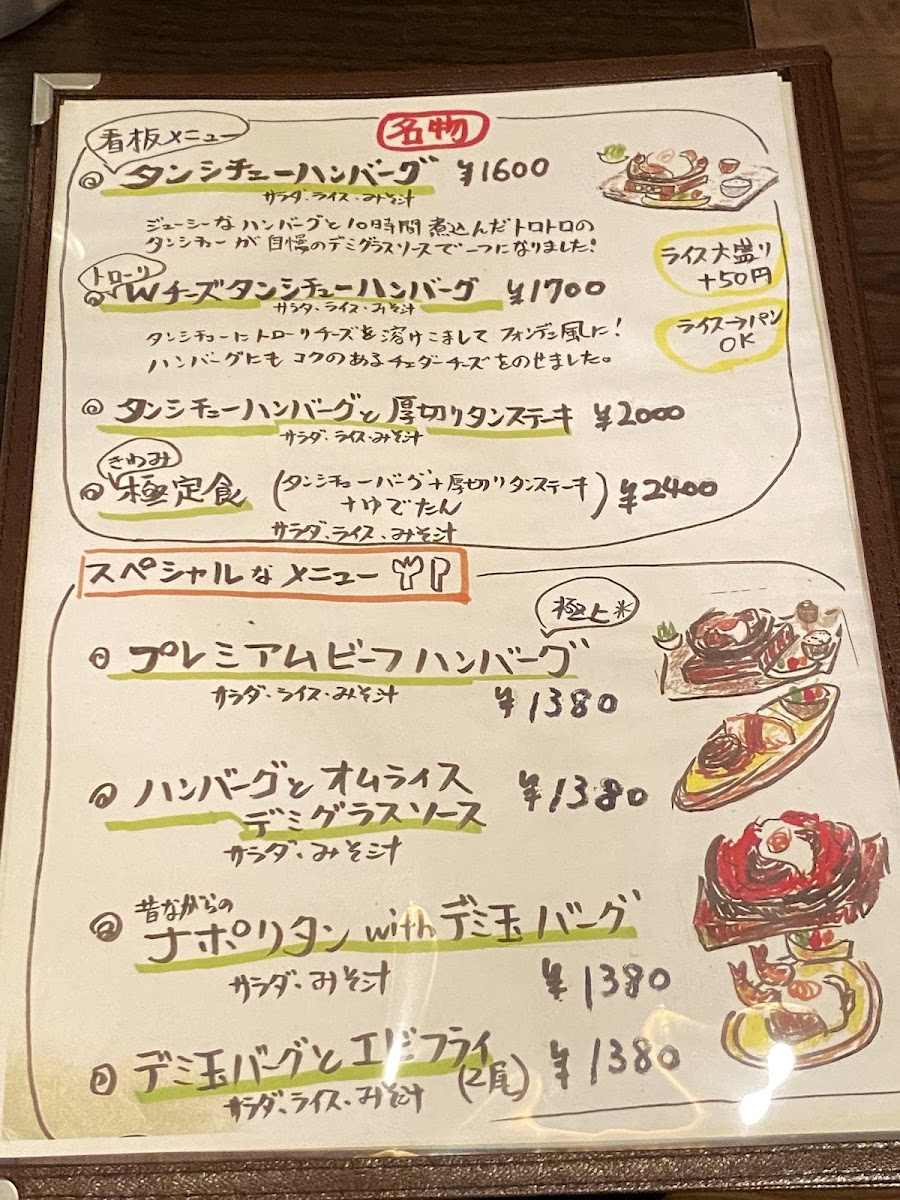 看板メニュー
名物
タンシチューハンバーグ ¥1600
サラダ・ライス・みそ汁
ジューシーなハンバーグと10時間煮込んだトロトロの
タンシチューが自慢のデミグラスソースで一つになりました!
ライス大盛り
+50円
トローリ
Wチーズタンシチューハンバーグ ¥1700
サラダ・ライス・みそ汁
タンシチューにトローリチーズを溶けこまして フォンデュ風に!
ハンバーグにもコクのあるチェダーチーズをのせました。
ライス→パン
OK
タンシチューハンバーグと厚切りタンステーキ ¥2000
サラダ・ライス・みそ汁
きわみ
極定食 (タンシチューバーグ+厚切りタンステーキ) ¥2400
+ゆでたん
サラダ、ライス、みそ汁
スペシャルなメニュー
極上*
プレミアムビーフハンバーグ
サラダ・ライス・みそ汁 ¥1380
ハンバーグとオムライス ¥1380
デミグラスソース
サラダ・みそ汁
昔ながらの
ナポリタン withデミ玉バーグ
サラダ・みそ汁 ¥1380
デミ玉バーグとエビフライ ¥1380
(2尾)
サラダ、ライス・みそ汁